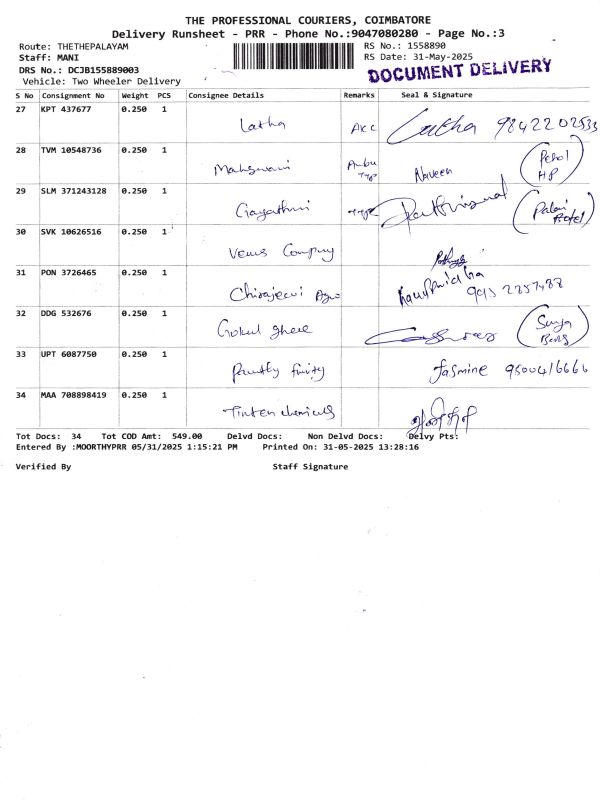 THE PROFESSIONAL COURIERS, COIMBATORE
Delivery Runsheet - PRR - Phone No.:9047080280 - Page No.:3
Route: THETHEPALAYAM RS No.: 1558890
Staff: MANI RS Date: 31-May-2025
DRS No.: DCJB155889003 DOCUMENT DELIVERY
Vehicle: Two Wheeler Delivery
S No Consignment No Weight PCS Consignee Details Remarks Seal & Signature
27 KPT 437677 0.250 1 Latha AKC Latha 9842202533
28 TVM 10548736 0.250 1 Naveen
29 SLM 371243128 0.250 1 Gayathri
30 SVK 10626516 0.250 1 Venus Company
31 PON 3726465 0.250 1 Chirajeevi
32 DDG 532676 0.250 1 Gokul
33 UPT 6087750 0.250 1 Jasmine 9500416666
34 MAA 708898419 0.250 1 chemicals
Tot Docs: 34 Tot COD Amt: 549.00 Delvd Docs: Non Delvd Docs: Delvy Pts:
Entered By :MOORTHYPRR 05/31/2025 1:15:21 PM Printed On: 31-05-2025 13:28:16
Verified By Staff Signature